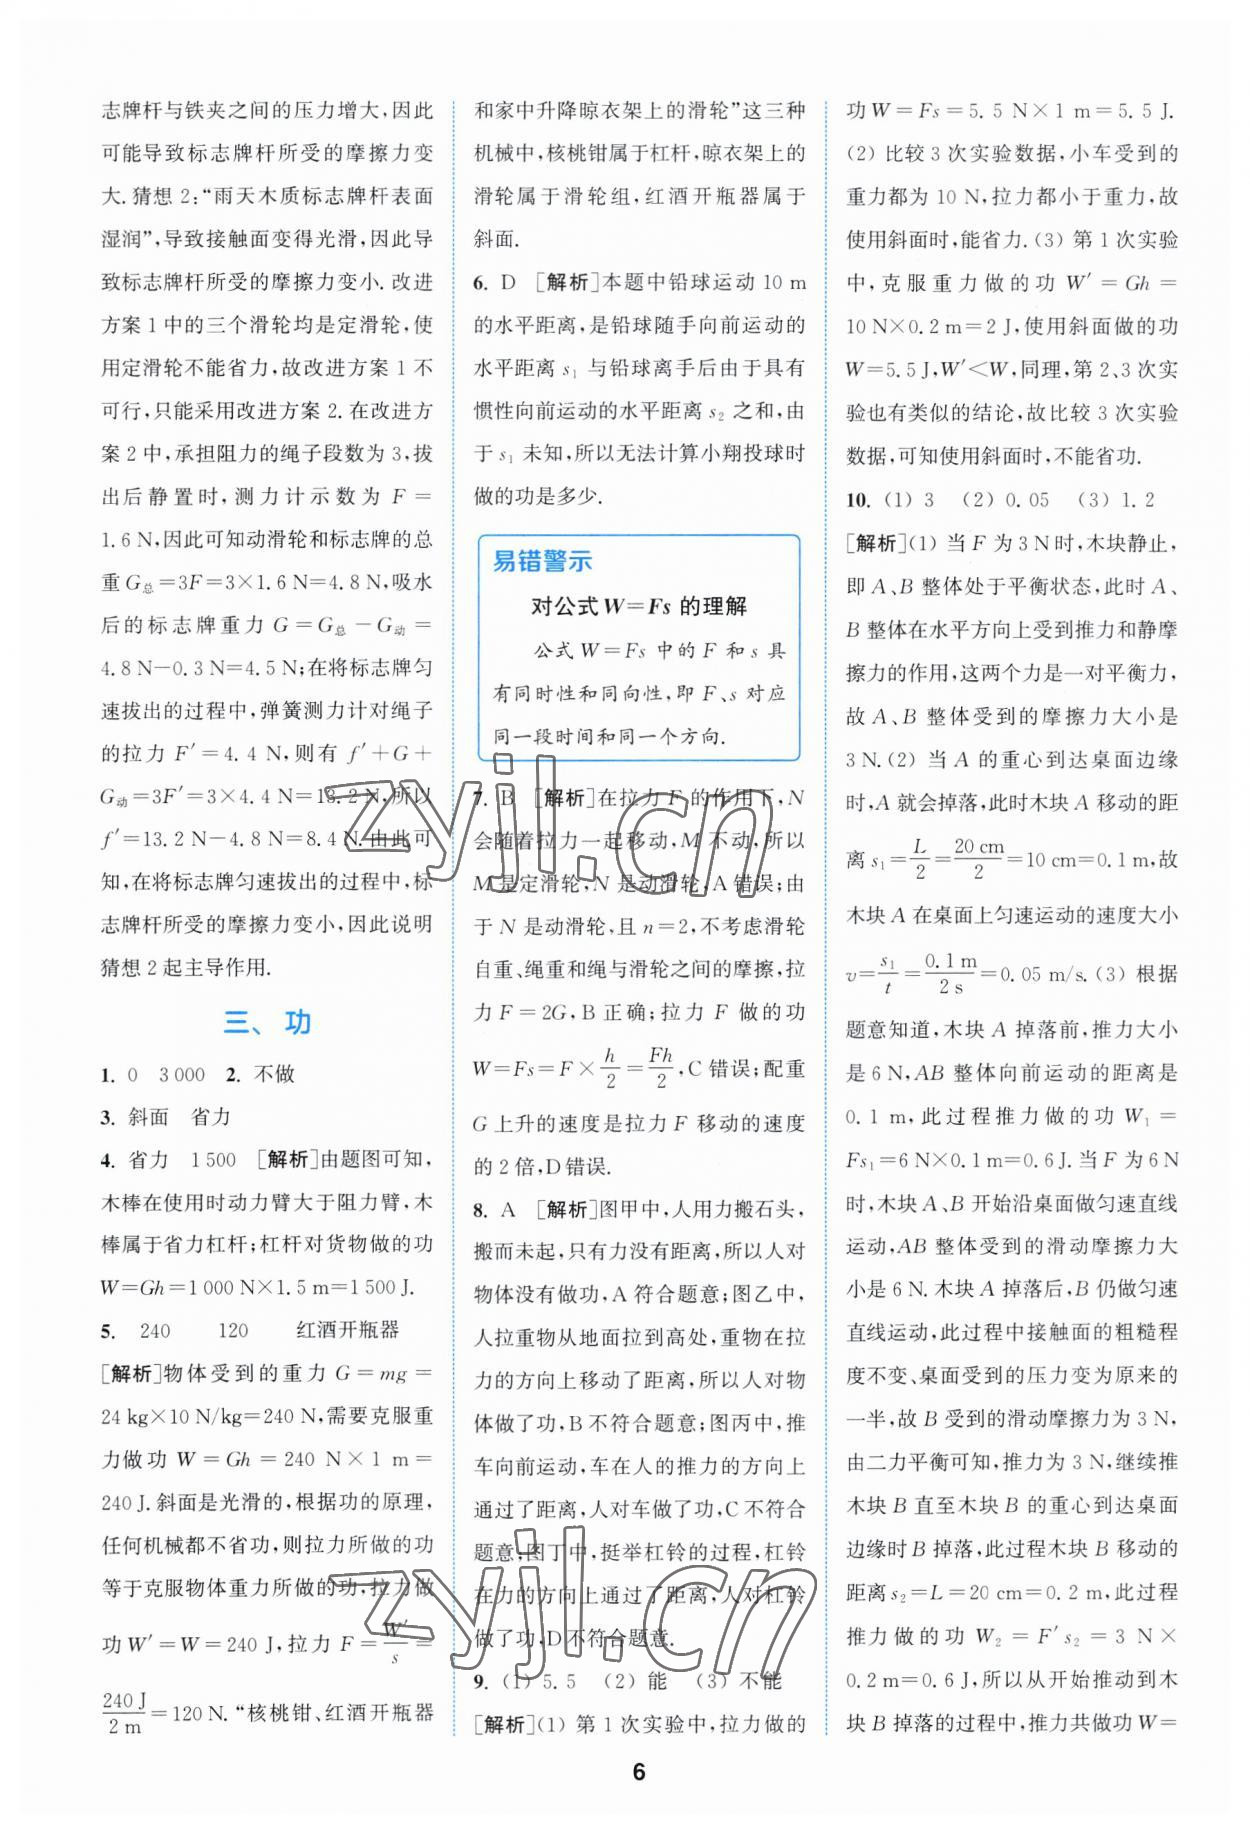 志牌杆与铁夹之间的压力增大,因此
可能导致标志牌杆所受的摩擦力变
大. 猜想 2:“雨天木质标志牌杆表面
湿润”,导致接触面变得光滑,因此导
致标志牌杆所受的摩擦力变小. 改进
方案 1 中的三个滑轮均是定滑轮,使
用定滑轮不能省力,故改进方案 1 不
可行,只能采用改进方案 2. 在改进方
案 2 中,承担阻力的绳子段数为 3,拔
出后静置时,测力计示数为 F =
1.6 N,因此可知动滑轮和标志牌的总
重 G总=3F=3×1.6 N=4.8 N,吸水
后的标志牌重力 G=G总-G动=
4.8 N-0.3 N=4.5 N;在将标志牌匀
速拔出的过程中,弹簧测力计对绳子
的拉力 F′=4.4 N,则有 f′+G+
G动=3F′=3×4.4 N=13.2 N,所以
f′=13.2 N-4.8 N=8.4 N. 由此可
知,在将标志牌匀速拔出的过程中,标
志牌杆所受的摩擦力变小,因此说明
猜想 2 起主导作用.
三、功
1. 0 3 000 2. 不做
3. 斜面 省力
4. 省力 1 500 [解析]由题图可知,
木棒在使用时动力臂大于阻力臂,木
棒属于省力杠杆;杠杆对货物做的功
W=Gh=1 000 N×1.5 m=1 500 J.
5. 240 120 红酒开瓶器
[解析]物体受到的重力 G=mg=
24 kg×10 N/kg=240 N,需要克服重
力做功 W=Gh=240 N×1 m=
240 J. 斜面是光滑的,根据功的原理,
任何机械都不省功,则拉力所做的功
等于克服物体重力所做的功,拉力做
功 W′=W=240 J,拉力 F=W′/s=
240 J/2 m=120 N. “核桃钳、红酒开瓶器
和家中升降晾衣架上的滑轮”这三种
机械中,核桃钳属于杠杆,晾衣架上的
滑轮属于滑轮组,红酒开瓶器属于
斜面.
6. D [解析]本题中铅球运动 10 m
的水平距离,是铅球随手向前运动的
水平距离 s₁ 与铅球离手后由于具有
惯性向前运动的水平距离 s₂ 之和,由
于 s₁ 未知,所以无法计算小翔投球时
做的功是多少.
易错警示
对公式 W=Fs 的理解
公式 W=Fs 中的 F 和 s 具
有同时性和同向性,即 F、s 对应
同一段时间和同一个方向.
7. B [解析]在拉力 F 的作用下,N
会随着拉力一起移动,M 不动,所以
M 是定滑轮,N 是动滑轮,A 错误;由
于 N 是动滑轮,且 n=2,不考虑滑轮
自重、绳重和绳与滑轮之间的摩擦,拉
力 F=2G,B 正确;拉力 F 做的功
W=Fs=F×h/2=Fh/2,C 错误;配重
G 上升的速度是拉力 F 移动的速度
的 2 倍,D 错误.
8. A [解析]图甲中,人用力搬石头,
搬而未起,只有力没有距离,所以人对
物体没有做功,A 符合题意;图乙中,
人拉重物从地面拉到高处,重物在拉
力的方向上移动了距离,所以人对物
体做了功,B 不符合题意;图丙中,推
车向前运动,车在人的推力的方向上
通过了距离,人对车做了功,C 不符合
题意;图丁中,挺举杠铃的过程,杠铃
在力的方向上通过了距离,人对杠铃
做了功,D 不符合题意.
9. (1) 5.5 (2) 能 (3) 不能
[解析](1) 第 1 次实验中,拉力做的
功 W=Fs=5.5 N×1 m=5.5 J.
(2) 比较 3 次实验数据,小车受到的
重力都为 10 N,拉力都小于重力,故
使用斜面时,能省力. (3) 第 1 次实验
中,克服重力做的功 W′=Gh=
10 N×0.2 m=2 J,使用斜面做的功
W=5.5 J,W′<W,同理,第 2、3 次实
验也有类似的结论,故比较 3 次实验
数据,可知使用斜面时,不能省功.
10. (1) 3 (2) 0.05 (3) 1.2
[解析](1) 当 F 为 3 N 时,木块静止,
即 A、B 整体处于平衡状态,此时 A、
B 整体在水平方向上受到推力和静摩
擦力的作用,这两个力是一对平衡力,
故 A、B 整体受到的摩擦力大小是
3 N. (2) 当 A 的重心到达桌面边缘
时,A 就会掉落,此时木块 A 移动的距
离 s₁=L/2=20 cm/2=10 cm=0.1 m,故
木块 A 在桌面上匀速运动的速度大小
v=s₁/t=0.1 m/2 s=0.05 m/s. (3) 根据
题意知道,木块 A 掉落前,推力大小
是 6 N,AB 整体向前运动的距离是
0.1 m,此过程推力做的功 W₁=
Fs₁=6 N×0.1 m=0.6 J. 当 F 为 6 N
时,木块 A、B 开始沿桌面做匀速直线
运动,AB 整体受到的滑动摩擦力大
小是 6 N. 木块 A 掉落后,B 仍做匀速
直线运动,此过程中接触面的粗糙程
度不变、桌面受到的压力变为原来的
一半,故 B 受到的滑动摩擦力为 3 N,
由二力平衡可知,推力为 3 N,继续推
木块 B 直至木块 B 的重心到达桌面
边缘时 B 掉落,此过程木块 B 移动的
距离 s₂=L=20 cm=0.2 m,此过程
推力做的功 W₂=F′s₂=3 N×
0.2 m=0.6 J,所以从开始推动到木
块 B 掉落的过程中,推力共做功 W=
6
zyjl.cn
zyjl.cn